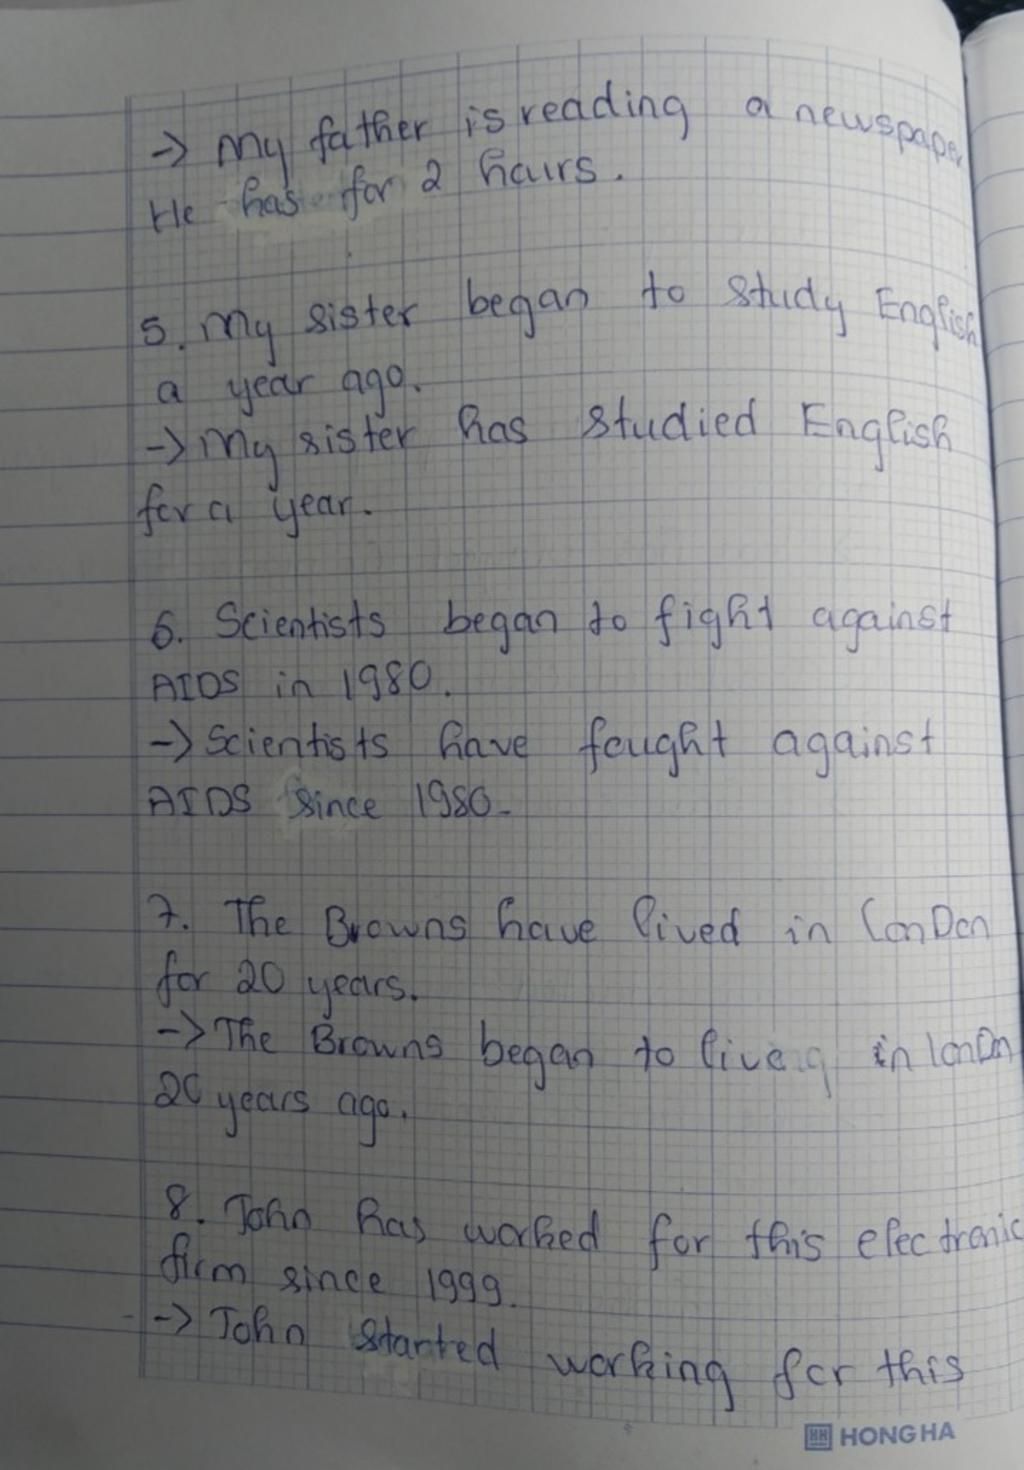 -> My father is reading a newspaper
He has for 2 hours.
5. My sister began to study English
a year ago.
-> My sister has studied English
for a year.
6. Scientists began to fight against
AIDS in 1980.
-> Scientists have fought against
AIDS since 1980.
7. The Browns have lived in LonDon
for 20 years.
-> The Browns began to live in lonDn
20 years ago.
8. John has worked for this electronic
firm since 1999.
-> John started working for this
HONG HA